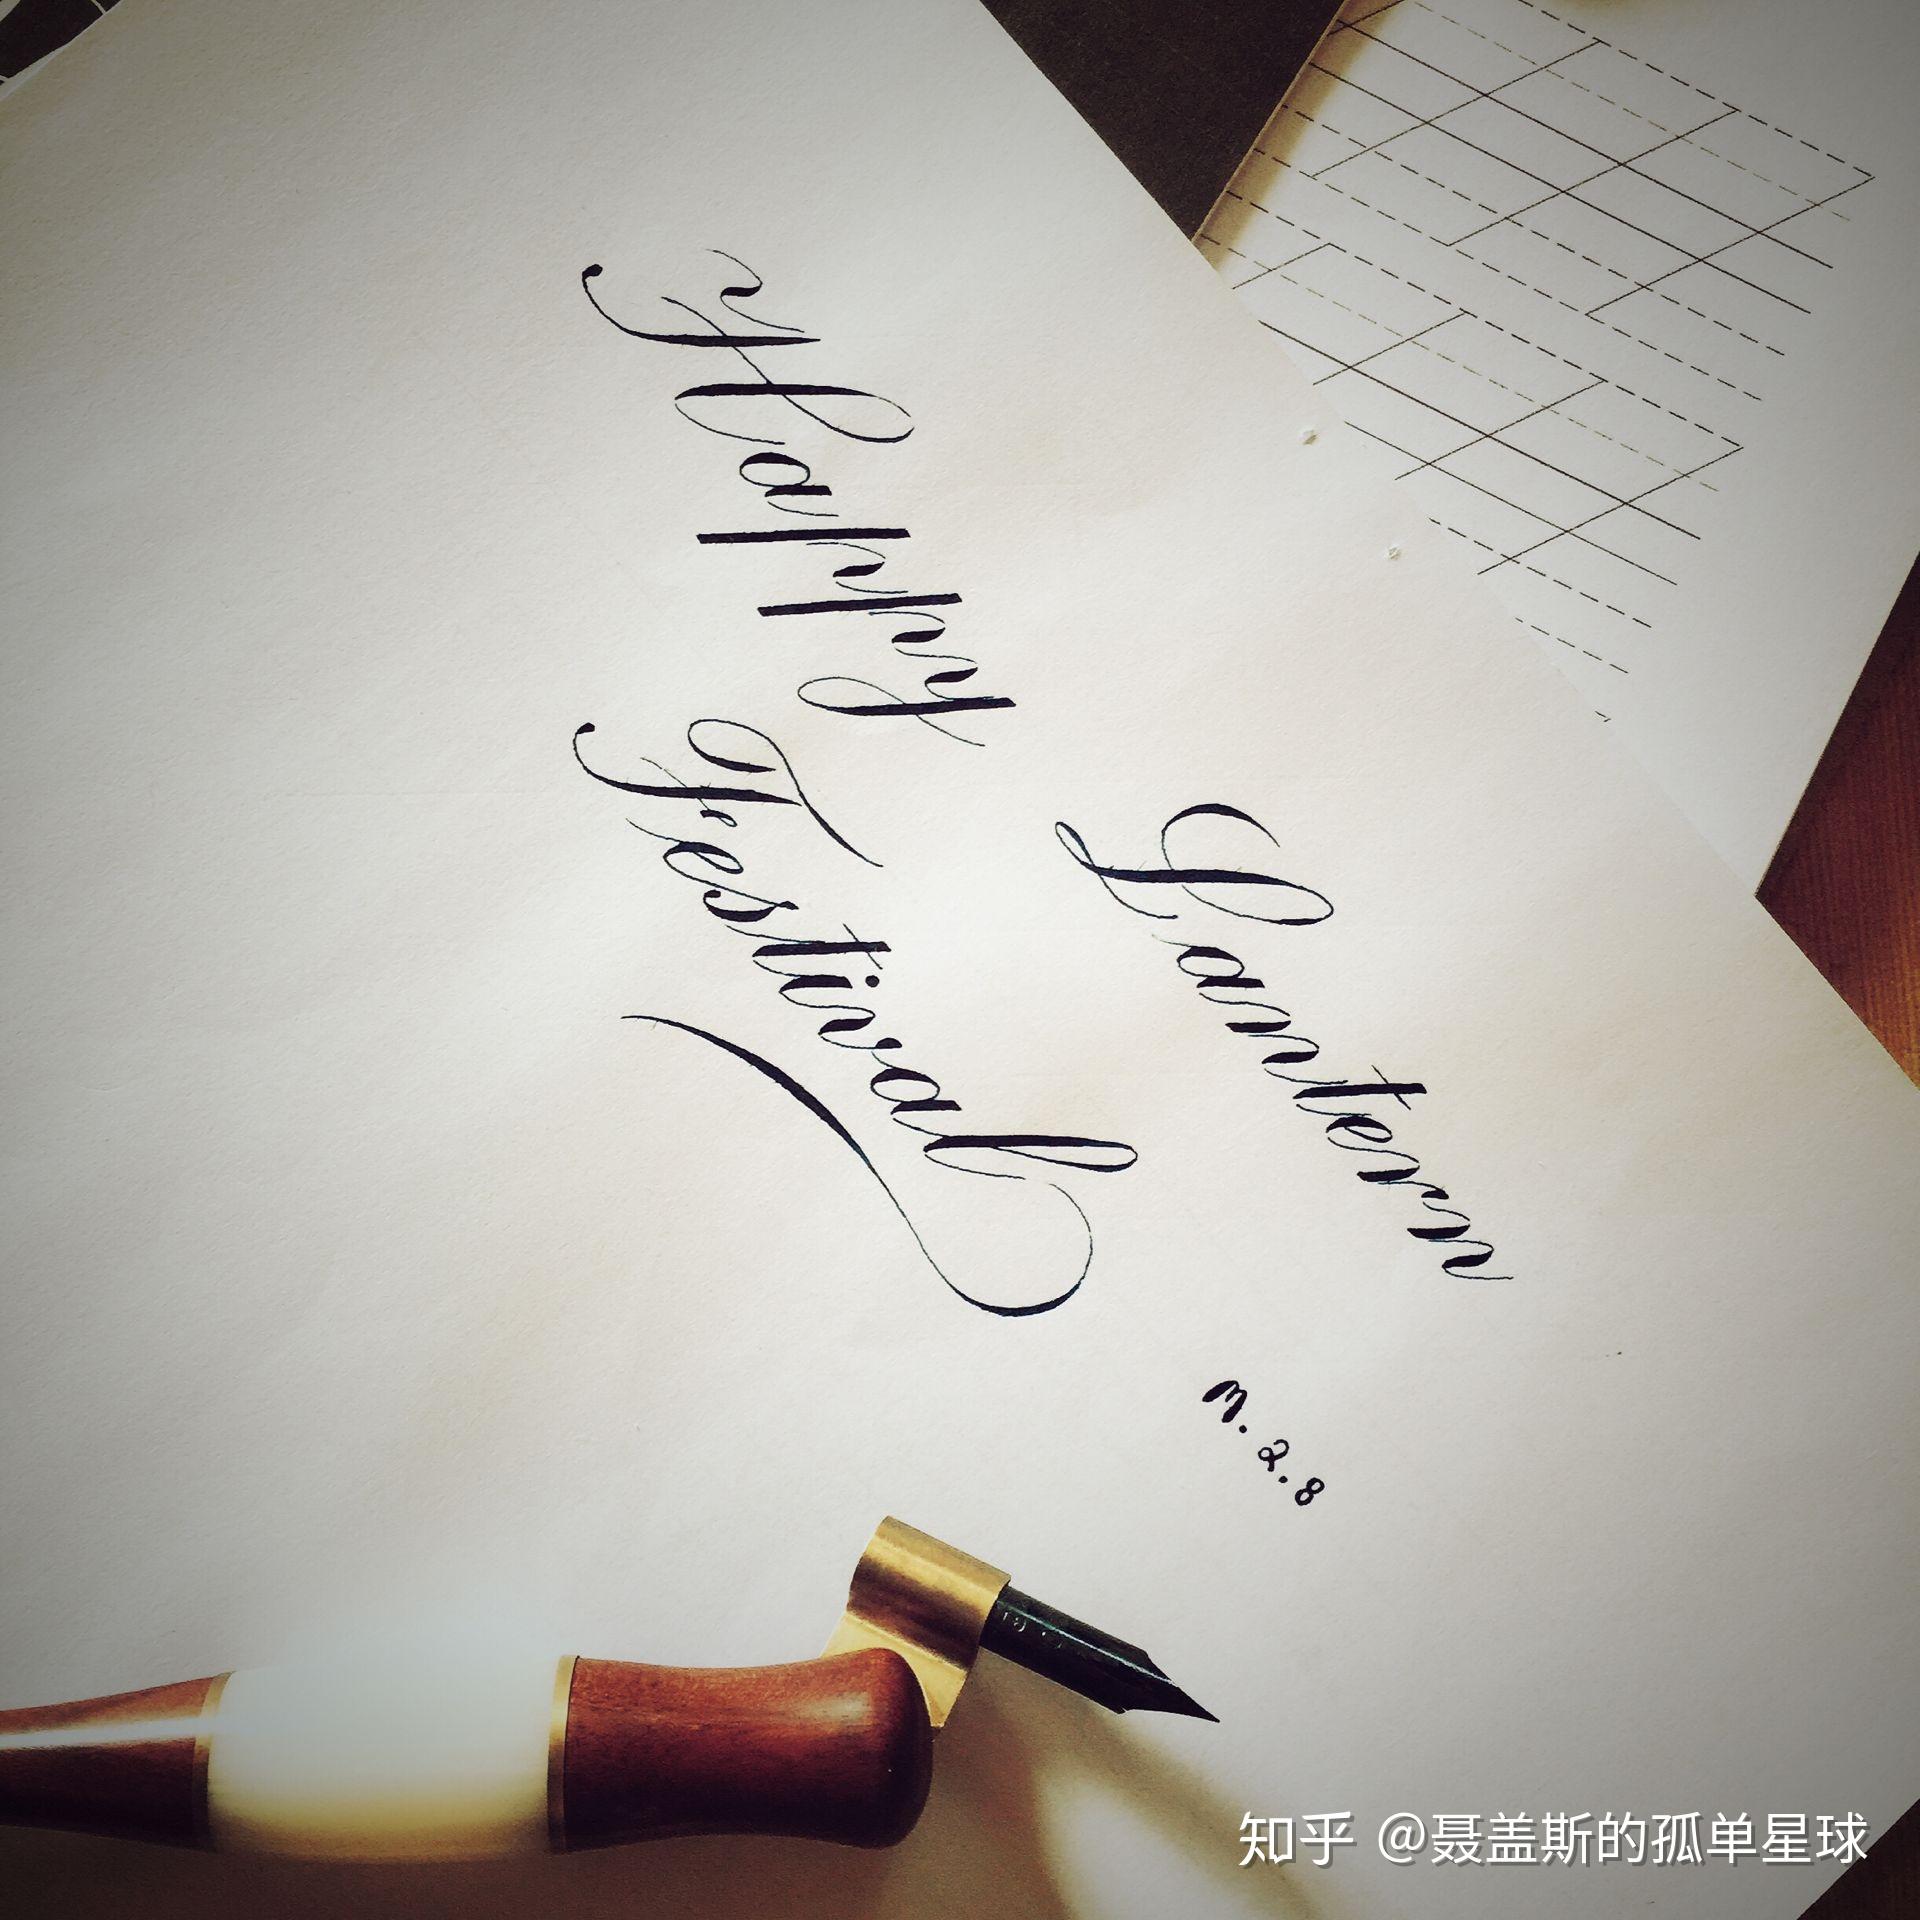 Happy
Lantern
Festival
M. 2. 8
知乎 @聂盖斯的孤单星球